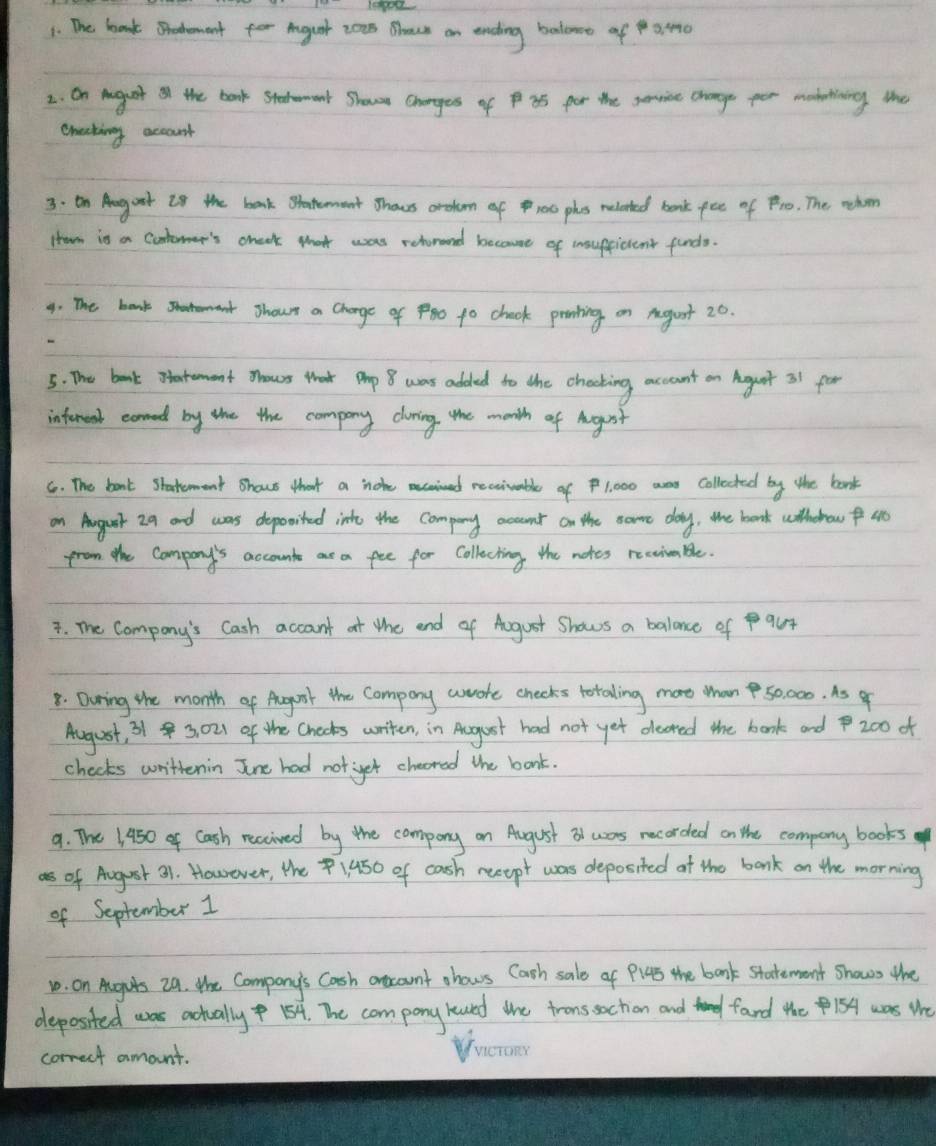 1. The bank Statement for August 2025 Shows an ending balance of ₱ 3,490
2. On August 31 the bank Statement Shows Charges of ₱ 35 for the service charge for the
Checking account
3. On August 28 the bank Statement Shows of ₱100 plus related bank fee of ₱10. The return
item is a Customer's check that was because of insufficient funds.
4. The bank Statement Shows a Charge of ₱80 fo check printing on August 20.
-
5. The bank Statement Shows that Php 8 was added to the checking account on August 31 for
by the the company during the month of August
6. The bank Statement Shows that a note receivable of ₱ 1,000 was Collected by the bank
on August 29 and was deposited into the Company account on the same day, the bank ₱ 40
from the Company's accounts as a fee for Collecting the notes receivable.
7. The Company's Cash account at the end of August Shows a balance of ₱ 967
8. During the month of August the Company wrote checks totaling more than ₱ 50,000. As of
August, 31 ₱ 3,021 of the Checks writen, in August had not yet the bank and ₱ 200 of
checks writtenin June had not yet cheared the bank.
9. The 1,450 of cash received by the company on August 31 was recorded on the company books
as of August 31. However, the ₱ 1,450 of cash was deposited at the bank on the morning
of September 1
10. On 29. the Company's Cash shows Cash sale of ₱145 the bank Statement Shows the
deposited was actually ₱ 154. The company the and fand the ₱154 was the
correct amount.
VICTORY